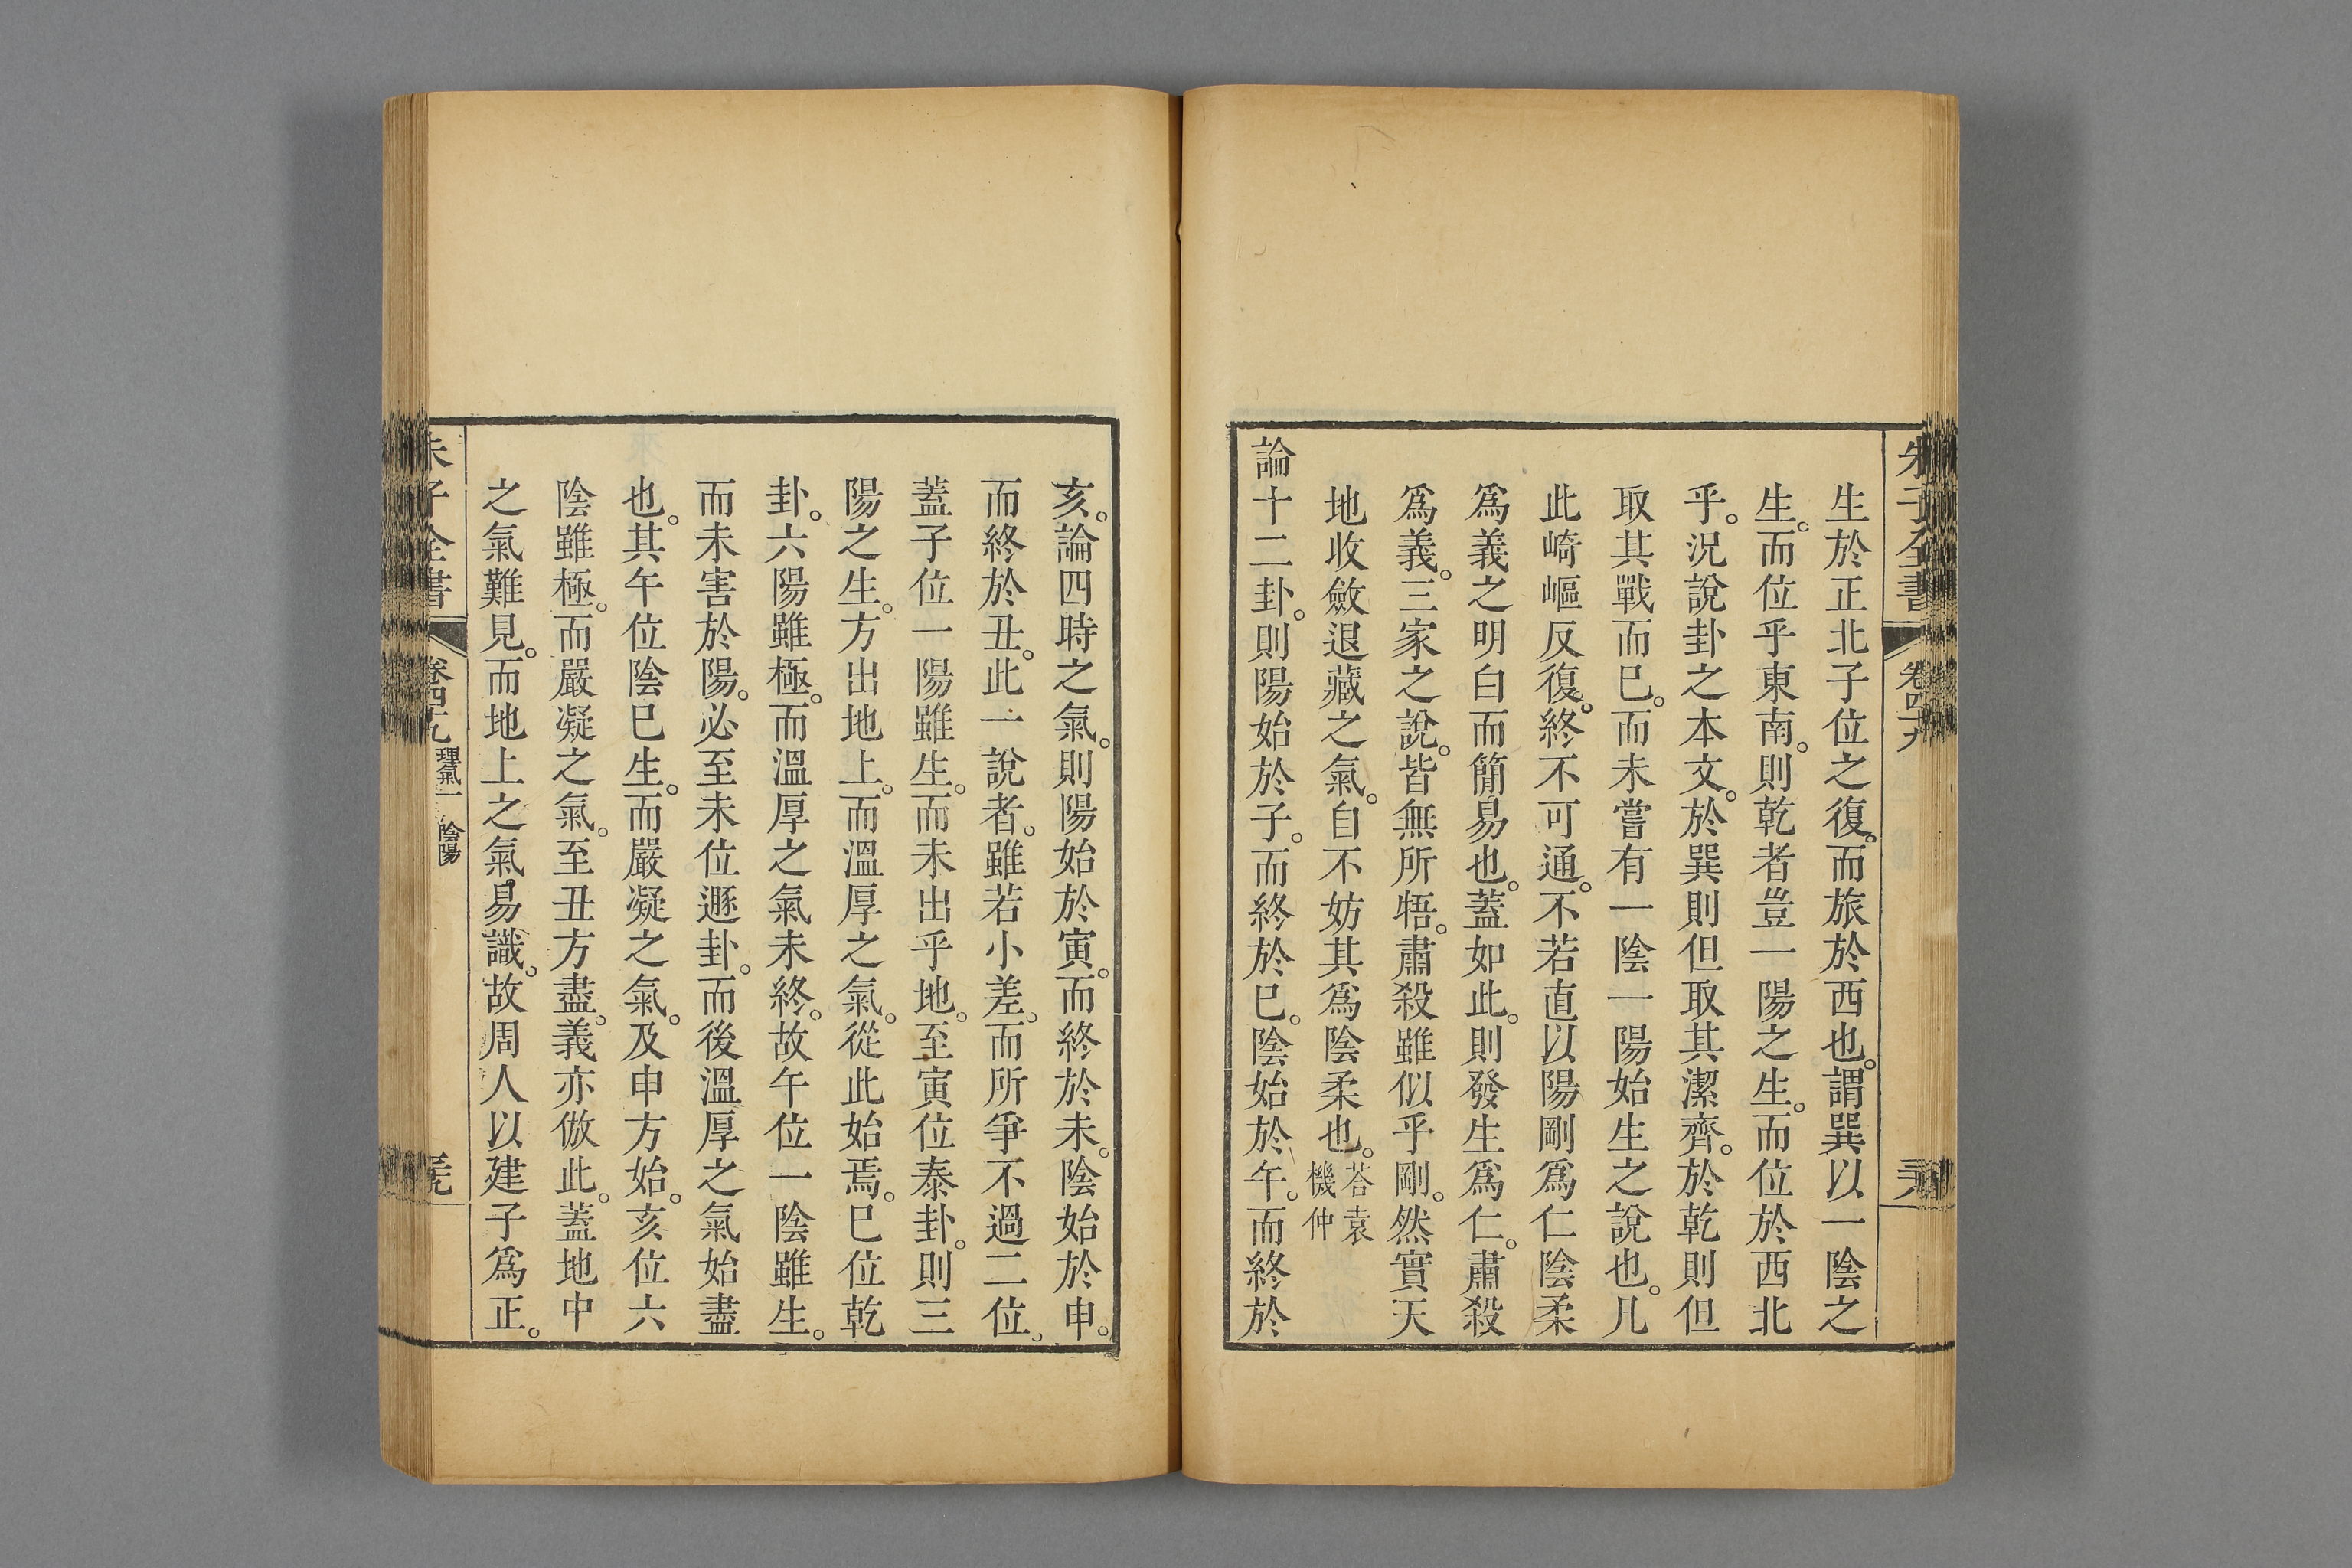 朱子全書 卷四十九
生於正北子位之復。而旅於西也。謂巽以一陰之
生。而位乎東南。則乾者豈一陽之生。而位於西北
乎。況說卦之本文。於巽則但取其潔齊。於乾則但
取其戰而已。而未嘗有一陰一陽始生之說也。凡
此崎嶇反復。終不可通。不若直以陽剛爲仁陰柔
爲義之明白而簡易也。蓋如此。則發生爲仁。肅殺
爲義。三家之說。皆無所牾。肅殺雖似乎剛。然實天
地收斂退藏之氣。自不妨其爲陰柔也。荅袁機仲
論十二卦。則陽始於子。而終於巳。陰始於午。而終於
亥。論四時之氣。則陽始於寅。而終於未。陰始於申。
而終於丑。此一說者。雖若小差。而所爭不過二位。
蓋子位一陽雖生。而未出乎地。至寅位泰卦。則三
陽之生。方出地上。而溫厚之氣。從此始焉。巳位乾
卦。六陽雖極。而溫厚之氣未終。故午位一陰雖生。
而未害於陽。必至未位遯卦。而後溫厚之氣始盡
也。其午位陰已生。而嚴凝之氣。及申方始。亥位六
陰雖極。而嚴凝之氣。至丑方盡。義亦倣此。蓋地中
之氣難見。而地上之氣。易識。故周人以建子爲正。
朱子全書 卷四十九 理氣一 陰陽